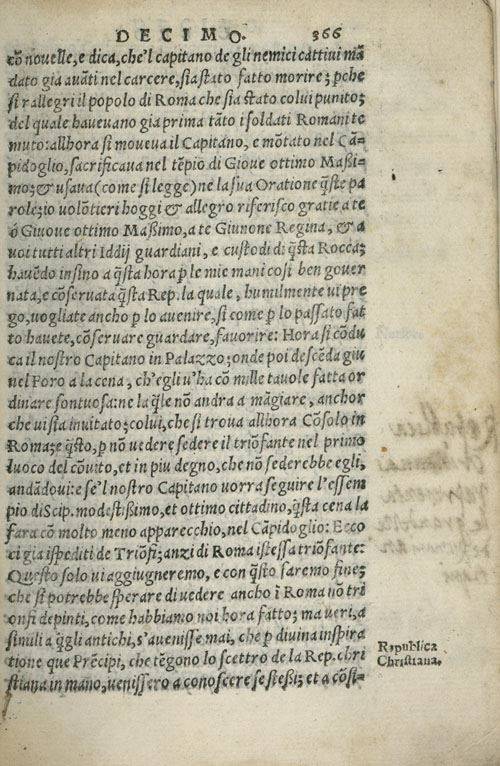 DECIMO. 366
cõ novelle, e dica, che'l capitano de gli nemici cattivi mã
dato gia avãti nel carcere, sia stato fatto morire; pche
si rallegri il popolo di Roma che sia stato colui punito;
del quale havevano gia prima tãto i soldati Romani te
muto: allhora si moveva il Capitano, e mõtato nel Cã-
pidoglio, sacrificava nel tẽpio di Giove ottimo Maßi-
mo; & usava (come si legge) ne la sua Oratione q̃ste pa
role; io volõtieri hoggi & allegro riferisco gratie a te
ó Giuove ottimo Maßimo, a te Giunone Regina, & a
voi tutti altri Iddij guardiani, e custodi di q̃sta Rocca;
havẽdo insino a q̃sta hora p le mie mani cosi ben gover
nata, e cõservata q̃sta Rep. la quale, humilmente vi pre
go, vogliate ancho p lo avenire, si come p lo passato fat
to havete, cõservare guardare, favorire: Hora si cõdu
ca il nostro Capitano in Palazzo; onde poi descẽda giu
nel Foro a la cena, ch'egli v'ha cõ mille tavole fatta or
dinare sontuosa: ne la q̃le nõ andra a mãgiare, anchor
che vi sia invitato; colui, che si trova allhora Cõsolo in
Roma; e q̃sto, p nõ vedere sedere il triõfante nel primo
luoco del cõvito, et in piu degno, che nõ sederebbe egli,
andãdovi: e se'l nostro Capitano vorra seguire l'essem
pio di Scip. modestißimo, et ottimo cittadino, q̃sta cena la
fara cõ molto meno apparecchio, nel Cãpidoglio: Ecco
ci gia ispediti de Triõfi; anzi di Roma istessa triõfante:
Questo solo vi aggiugneremo, e con q̃sto saremo fine;
che si potrebbe sperare di vedere ancho ĩ Roma nõ tri
onfi depinti, come habbiamo noi hora fatto; ma veri, a
simili a q̃gli antichi, s'avenisse mai, che p divina inspira
tione que Prẽcipi, che tẽgono lo scettro de la Rep. chri
stiana in mano, venissero a conoscere se steßi; et a cõsi-
Republica
Christiana.